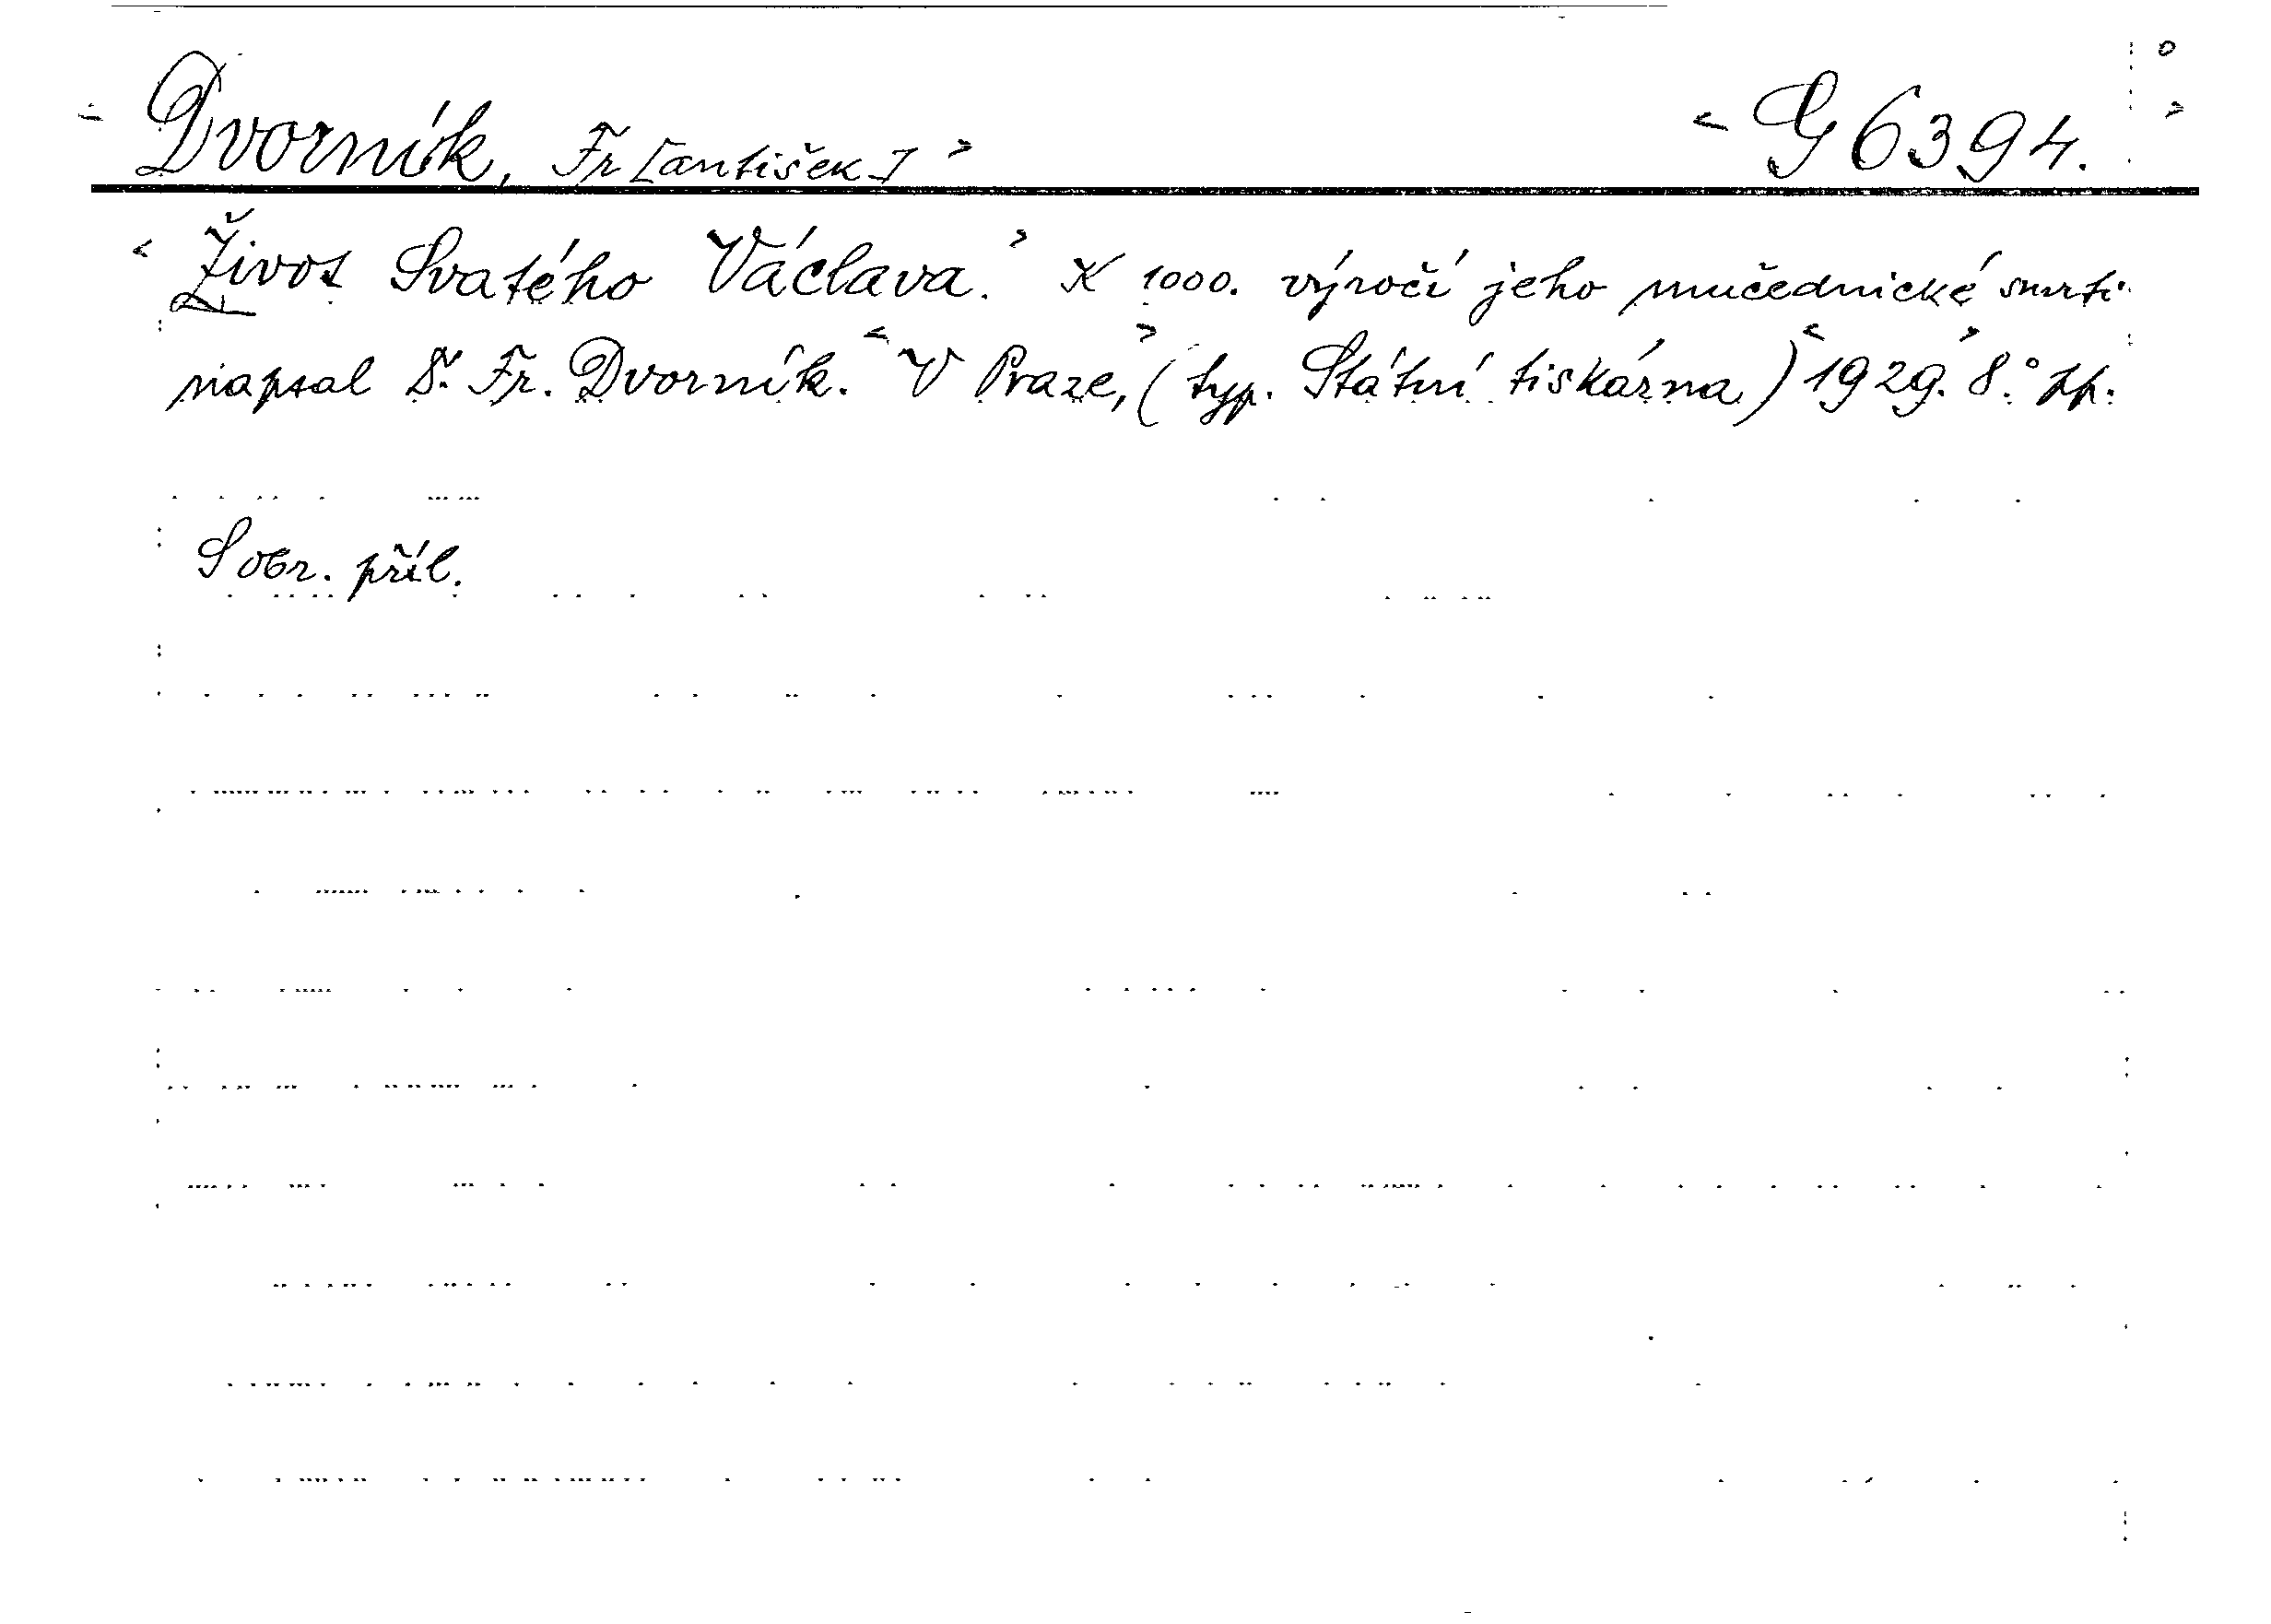 < Dvorník, Fr[antišek] > < G 6394. >
< Život Svatého Václava. > K 1000. výročí jeho mučednické smrti
napsal Dr. Fr. Dvorník. < V Praze, > (typ. Státní tiskárna) < 1929. > 8.°
S obr. příl.